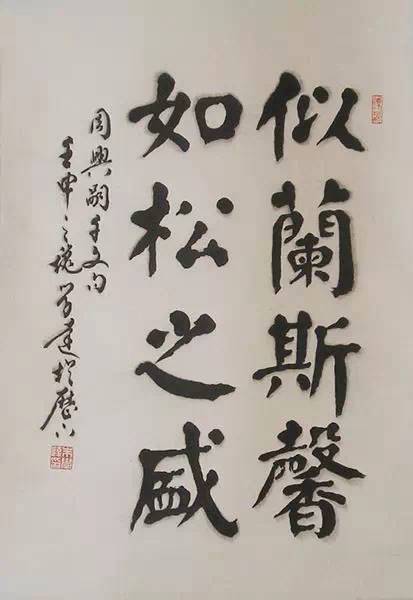 似蘭斯馨
如松之盛
周興嗣千文句
壬申之於歷下